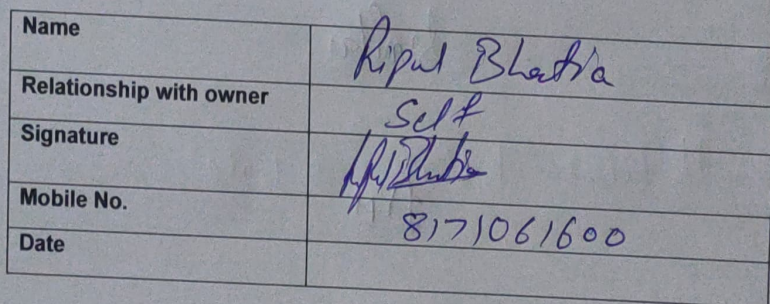 Name Ripul Bhatia
Relationship with owner Self
Signature
Mobile No. 8171061600
Date